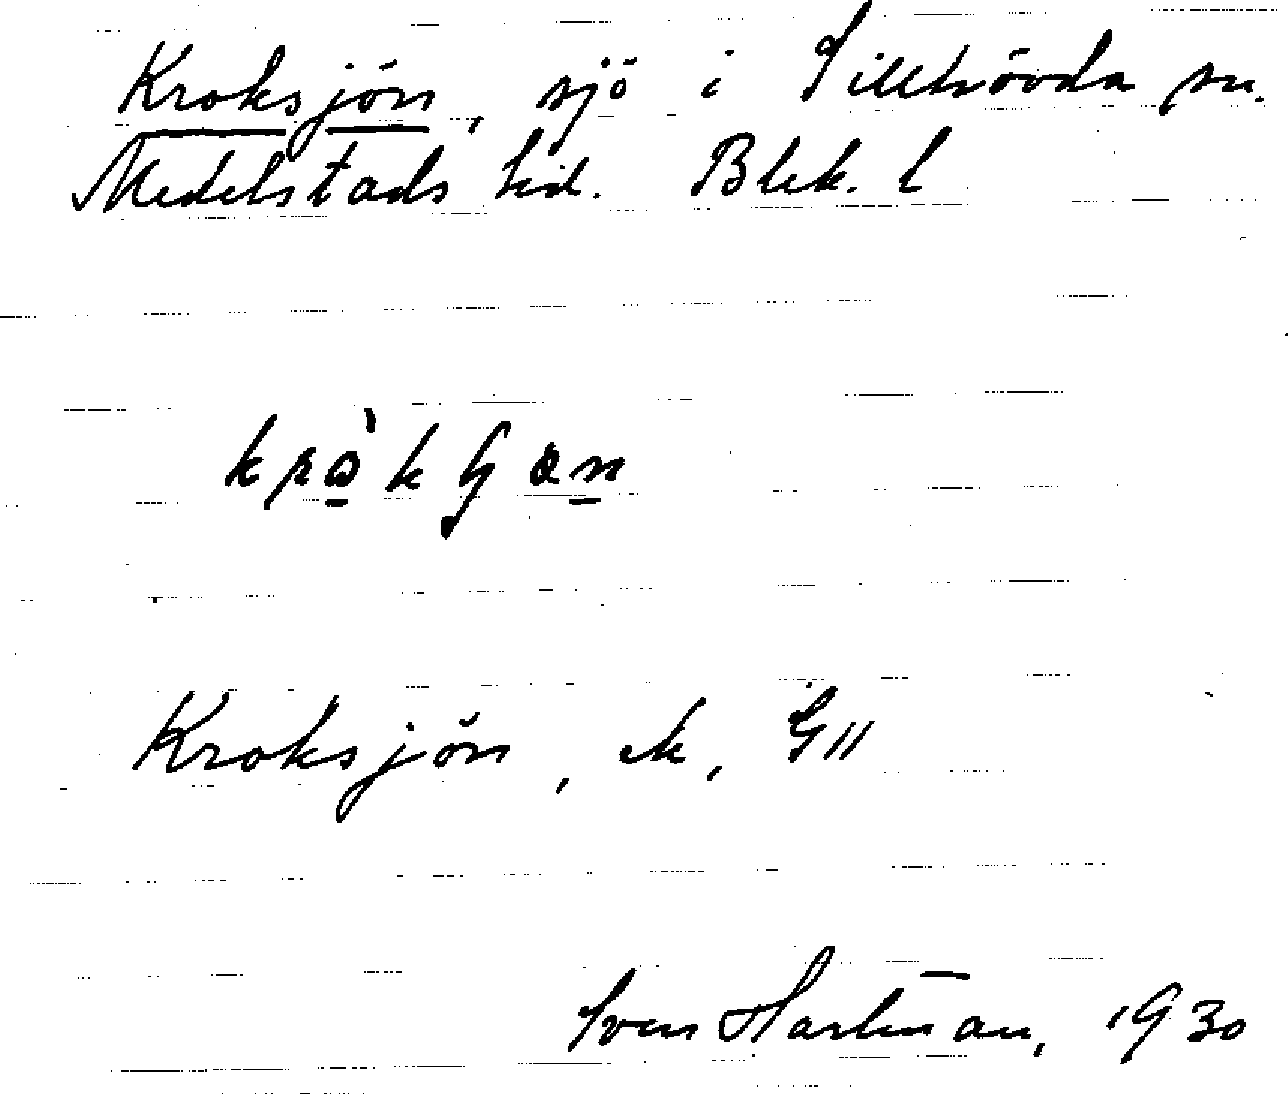 Kroksjön, sjö i Tillhövda sn.
Medelstads hd. Blek. l
Kroksjön, ek, G11
Sven Hartman, 1930